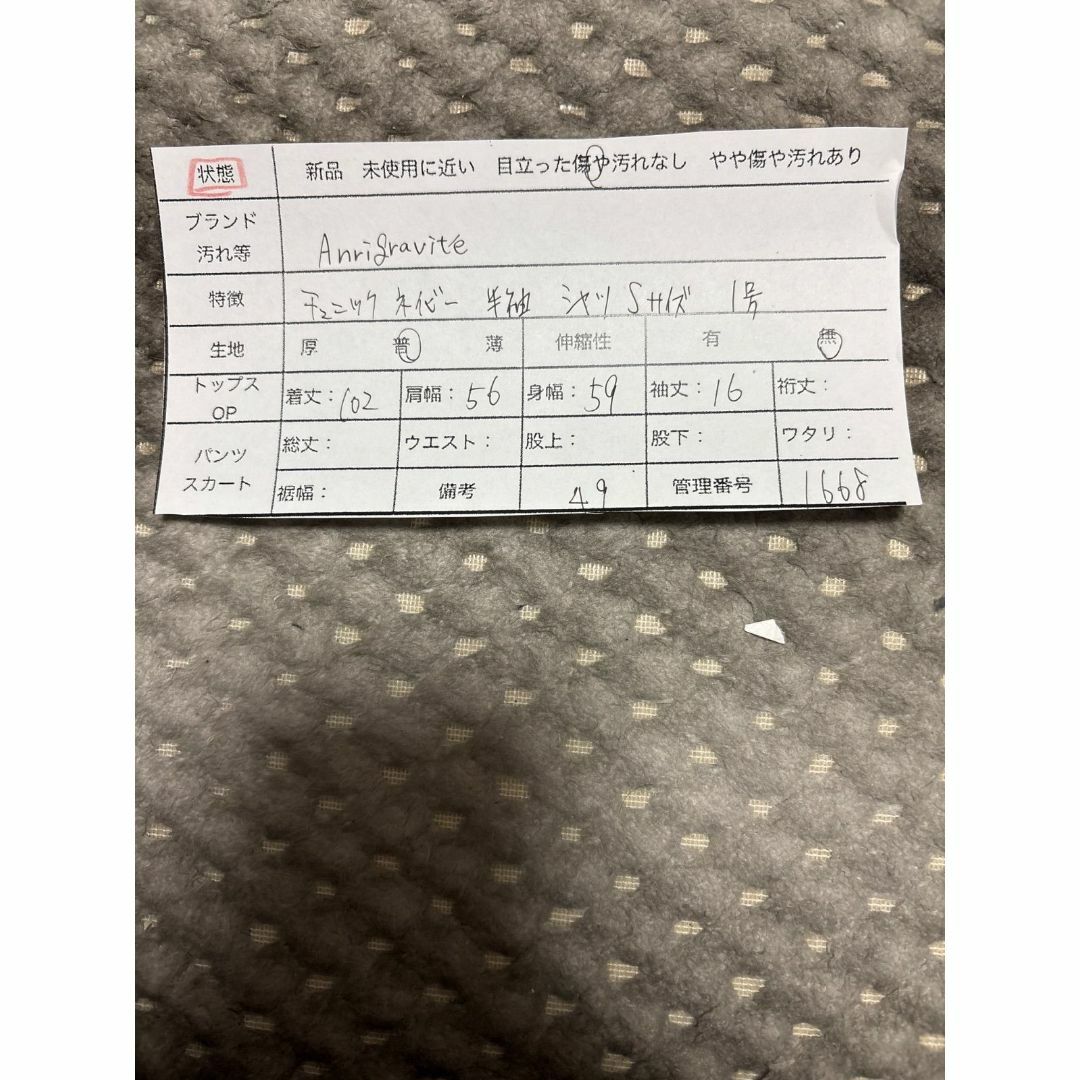 状態 新品 未使用に近い 目立った傷や汚れなし やや傷や汚れあり
ブランド
汚れ等 Anrigravite
特徴 チュニック ネイビー 半袖 シャツ Sサイズ 1号
生地 厚 普 薄 伸縮性 有 無
トップス
OP 着丈：102 肩幅：56 身幅：59 袖丈：16 裄丈：
パンツ
スカート 総丈： ウエスト： 股上： 股下： ワタリ：
裾幅： 備考 49 管理番号 1668